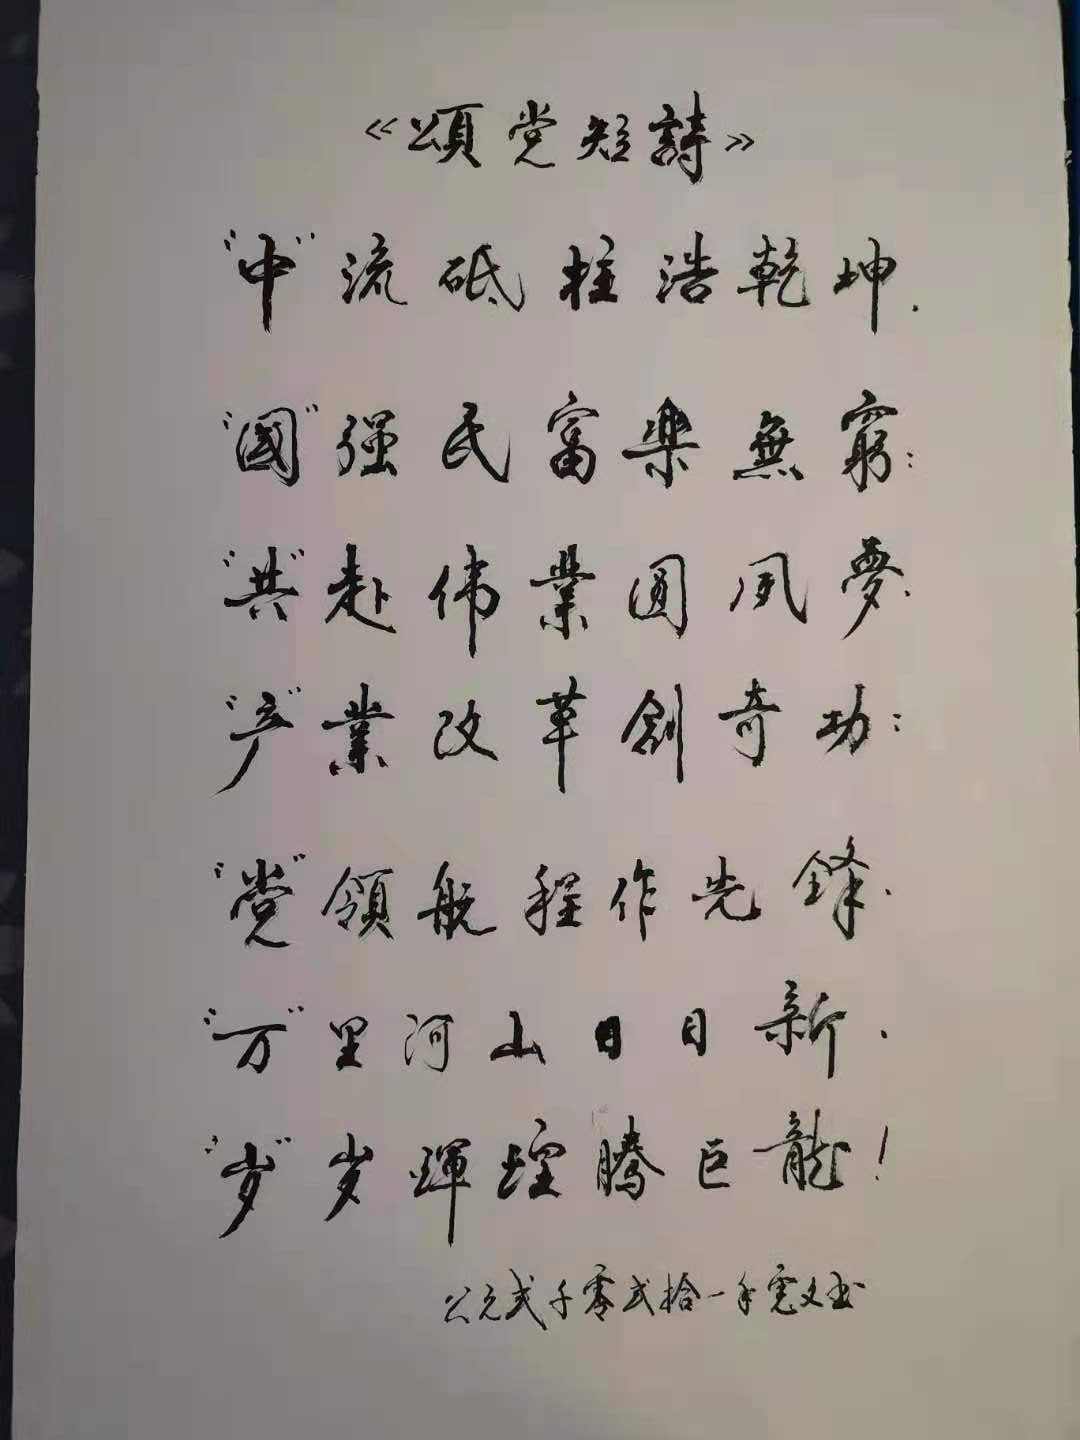 《頌党短詩》
"中"流砥柱浩乾坤.
"國"强民富樂無窮:
"共"赴伟業圓夙夢.
"产"業改革創奇功:
"党"領航程作先鋒.
"万"里河山日日新.
"岁"岁輝煌腾巨龍!
公元贰千零贰拾一年宪文书